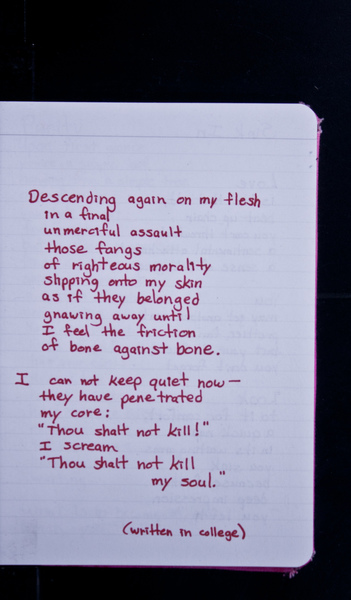 Descending again on my flesh
in a final
unmerciful assault
those fangs
of righteous morality
slipping onto my skin
as if they belonged
gnawing away until
I feel the friction
of bone against bone.
I can not keep quiet now—
they have penetrated
my core:
"Thou shalt not kill!"
I scream
"Thou shalt not kill
my soul."
(written in college)